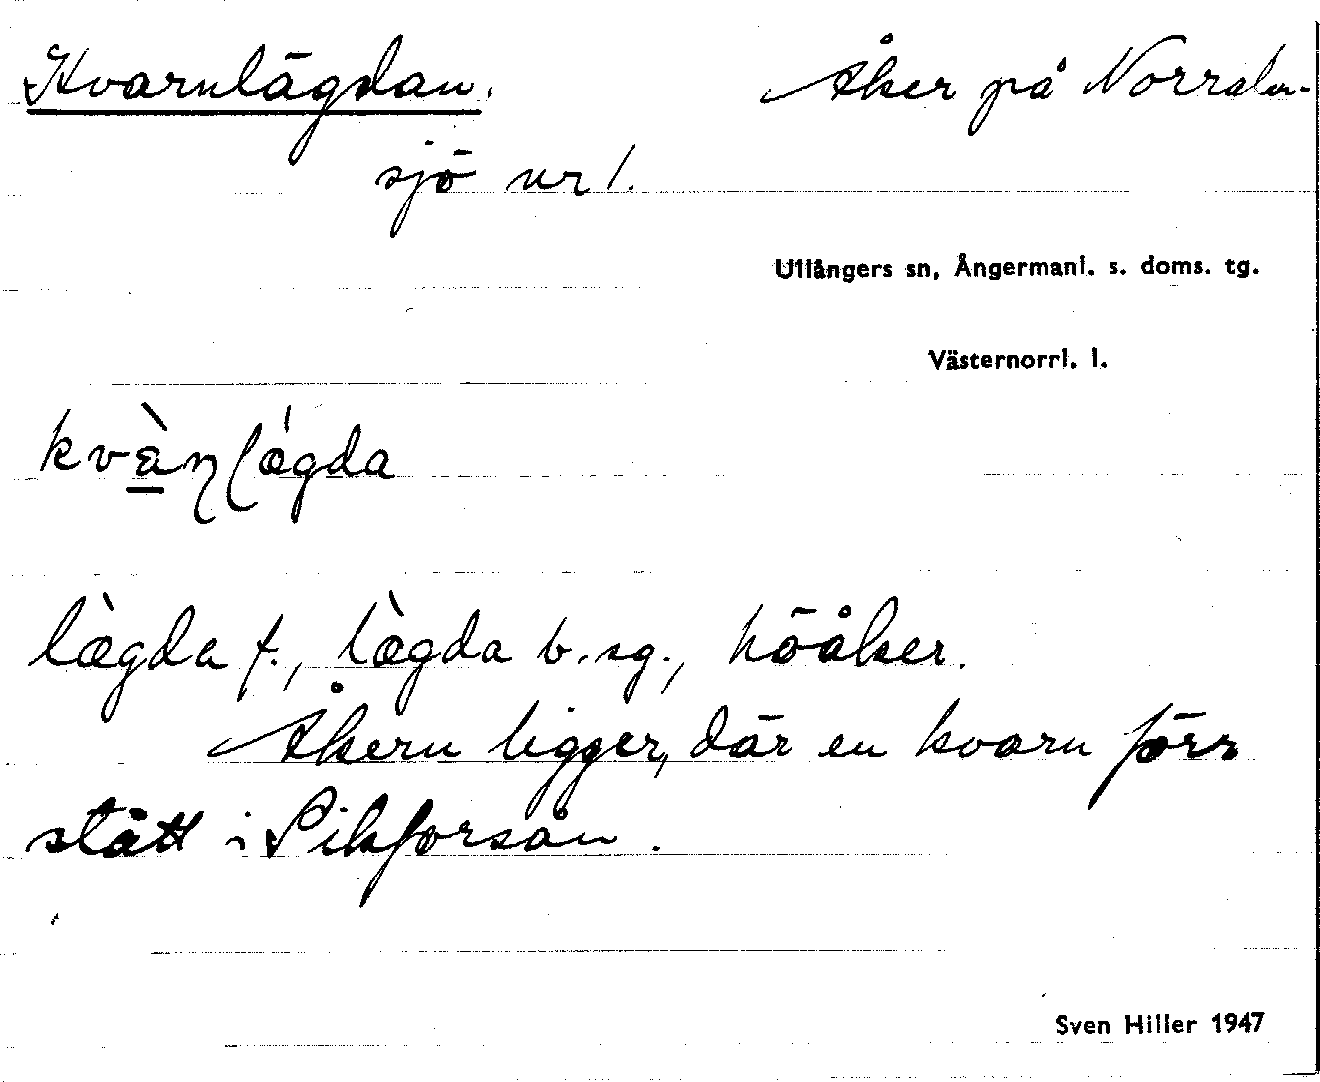 Kvarnlägdan. Åker på Norralen-
sjö nr 1.
Ullångers sn, Ångermanl. s. doms. tg.
Västernorrl. l.
kvàɳlǽgda
læ̀gda f., læ̀gda b.sg., höåker.
Åkern ligger, där en kvarn förr
stått i Sikforsån.
Sven Hiller 1947